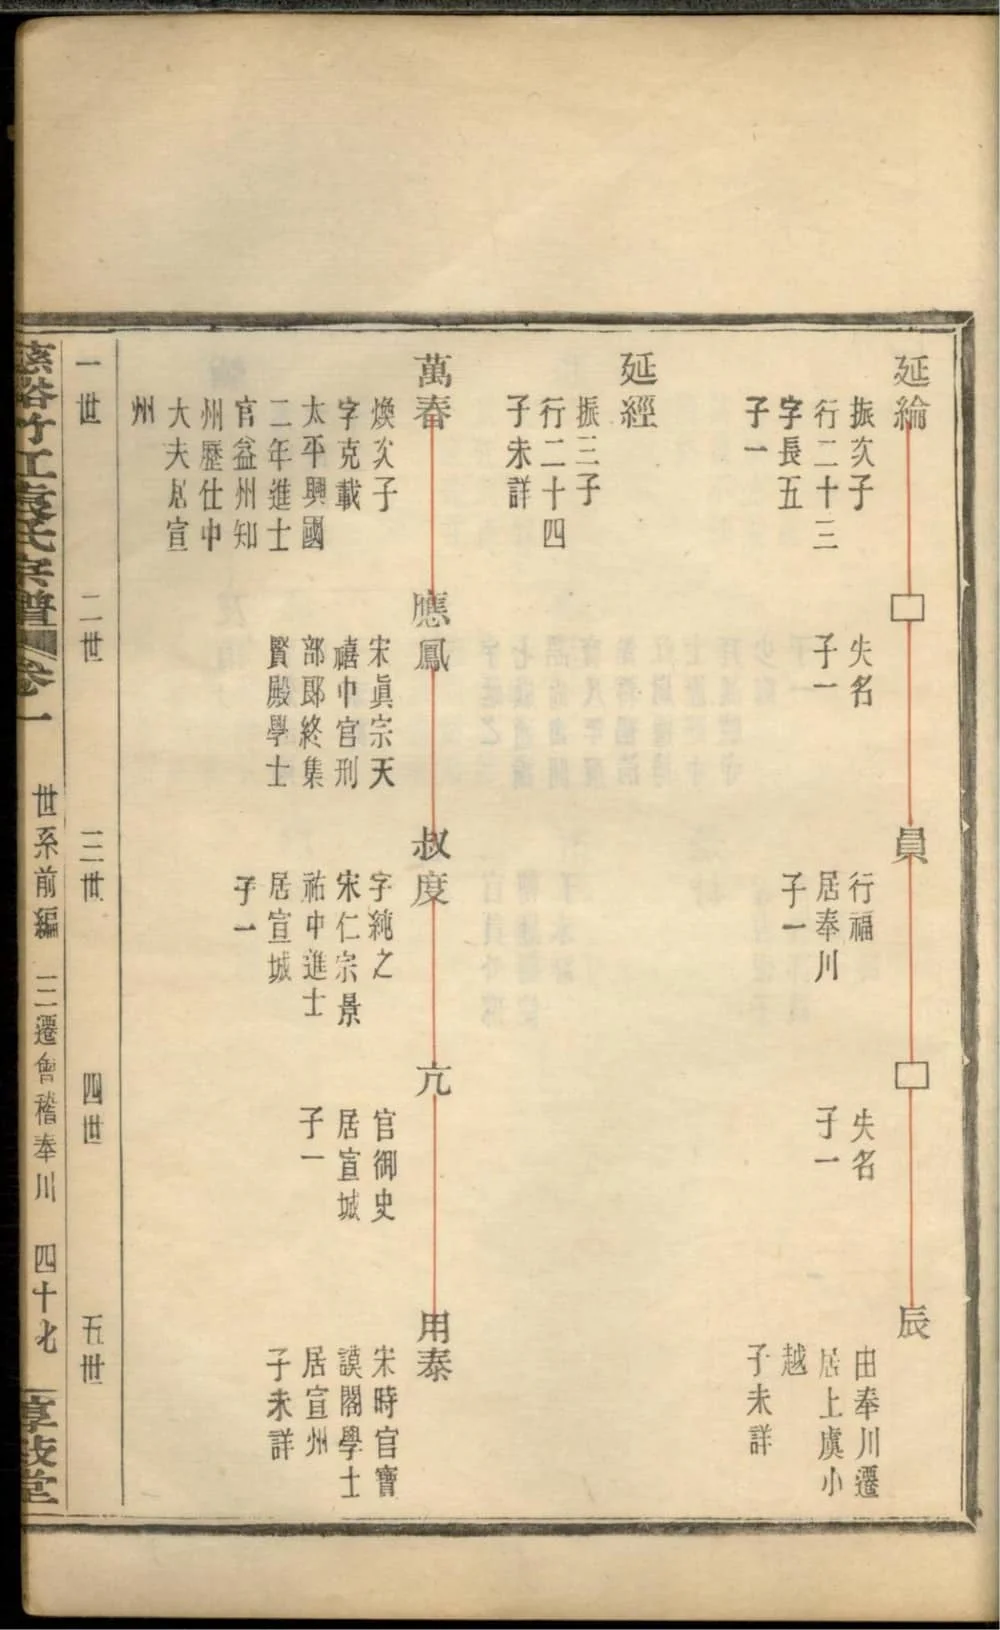 延綸
振次子
行二十三
字長五
子一
□
失名
子一
員
行福
居奉川
子一
□
失名
子一
辰
由奉川遷
居上虞小
越
子未詳
延經
振三子
行二十四
子未詳
萬春
煥次子
字克載
太平興國
二年進士
官益州知
州歷仕中
大夫居宣
州
應鳳
宋眞宗天
禧中官刑
部郎終集
賢殿學士
叔度
字純之
宋仁宗景
祐中進士
居宣城
子一
亢
官御史
居宣城
子一
用泰
宋時官寶
謨閣學士
居宣州
子未詳
一世
二世
三世
四世
五世
慈谿竹江袁氏宗譜 卷一
世系前編 三遷會稽奉川 四十七